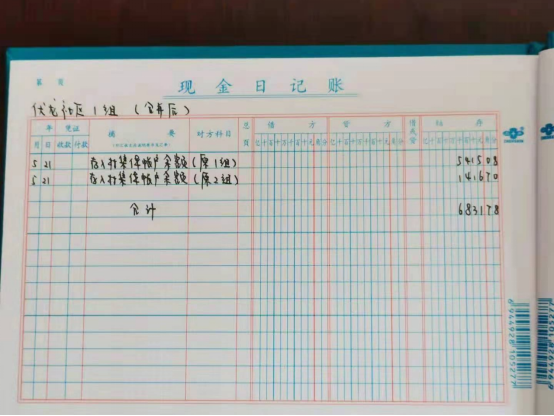 第 页
现金日记账
伏龙社区1组 (合并后)
年 凭证 摘要 对方科目 总页 借方 贷方 借或贷 结存
月 日 收款 付款 亿千百十万千百十元角分 亿千百十万千百十元角分 亿千百十万千百十元角分
5 21 存入村集体帐户余额(原1组) 541508
5 21 存入村集体帐户余额(原2组) 141670
合计 683178
6944928105277
6944928105277